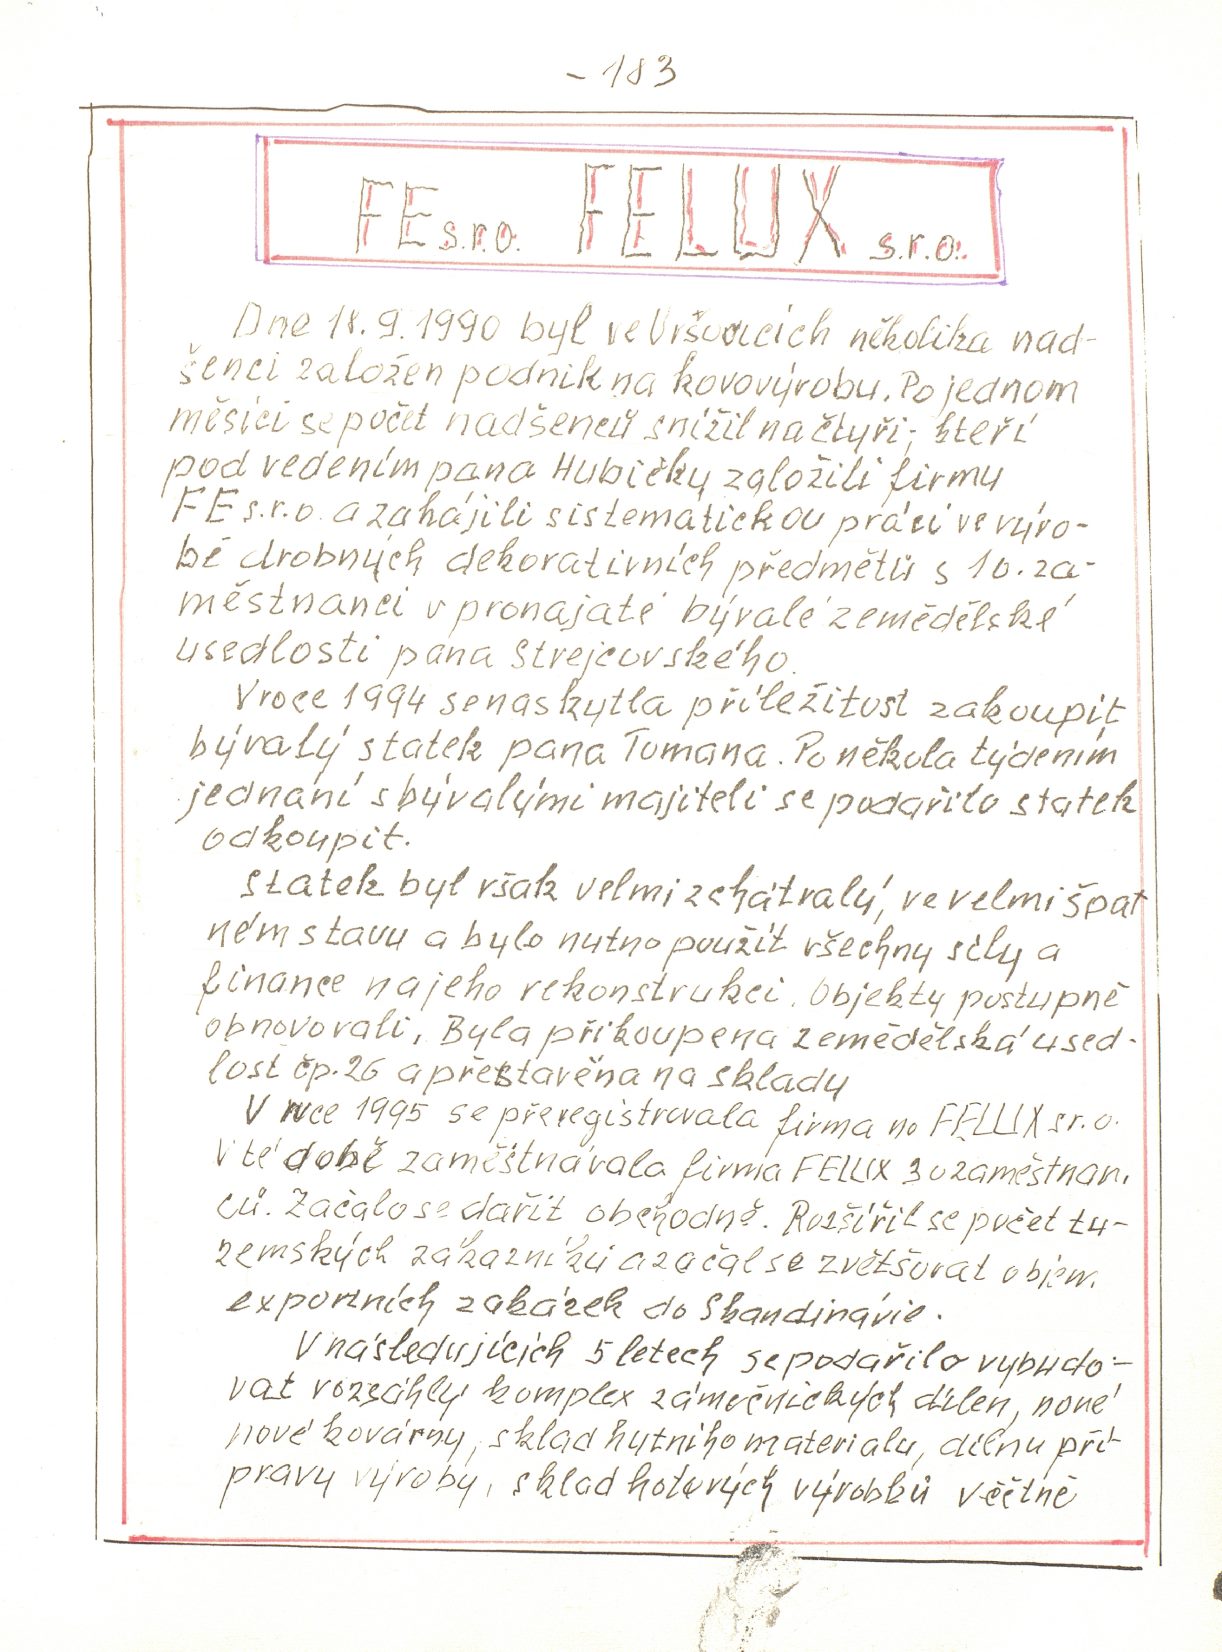 - 183
FE s.r.o. FELUX s.r.o.
Dne 18.9.1990 byl ve Vršovicích několika nad-
šenci založen podnik na kovovýrobu. Po jednom
měsíci se počet nadšenců snížil na čtyři, kteří
pod vedením pana Hubičky založili firmu
FE s.r.o. a zahájili sistematickou práci ve výro-
bě drobných dekorativních předmětů s 10. za-
městnanci v pronajaté bývalé zemědělské
usedlosti pana Strejcovského.
V roce 1994 se naskytla příležitost zakoupit
bývalý statek pana Tomana. Po někola týdením
jednaní s bývalými majiteli se podařilo statek
odkoupit.
Statek byl však velmi zchátralý, ve velmi špat
ném stavu a bylo nutno použít všechny síly a
finance na jeho rekonstrukci. Objekty postupně
obnovovali. Byla přikoupena zemědělská used-
lost čp. 26 a přestavěna na sklady
V roce 1995 se přeregistrovala firma na FELUX s.r.o.
V té době zaměstnávala firma FELUX 30 zaměstnan-
ců. Začalo se dařit obchodně. Rozšířil se počet tu-
zemských zákazníků a začal se zvětšovat objem
exportních zakázek do Skandinávie.
V následujících 5 letech se podařilo vybudo-
vat rozsáhlý komplex zámečnických dílen, nové
nové kovárny, sklad hutního materialu, dílnu pří-
pravy výroby, sklad hotových výrobků včetně